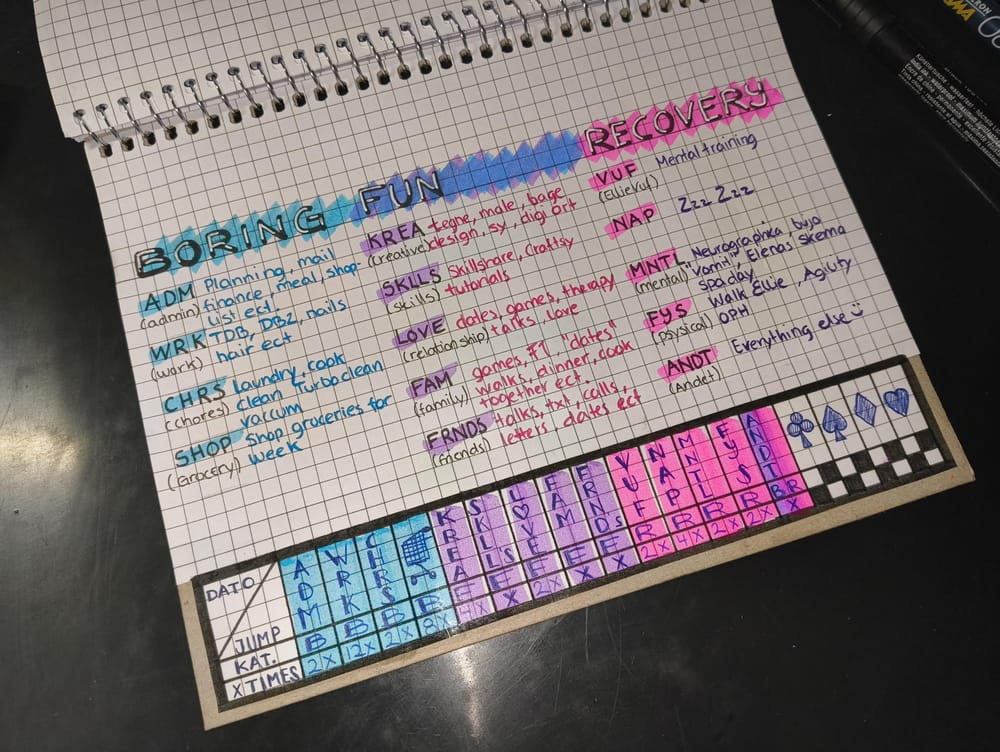 BORING
ADM Planning, mail
(admin) finance, meal, shop.
List ect
WRK TDB, DBZ, nails
(work) hair ect
CHRS laundry, cook
(chores) clean Turboclean
vaccum
SHOP Shop groceries for
(Grocery) week
FUN
KREA tegne, male, bage
(creative) design, sy, digi art
SKLLS Skillshare, Craftsy
(skills) tutorials
LOVE dates, games, therapy
(relationship) talks, love
FAM games, F1, "dates"
(family) walks, dinner, cook
together ect.
FRNDS talks, txt, calls,
(friends) letters dates ect
RECOVERY
VUF Mental training
(EllieVuf)
NAP Zzz Zzz
MNTL Neurographica, bujo
(mental) "Vomit", Elenas Skema
Spa day
FYS Walk Ellie, Agility
(psysical) OPH
ANDT Everything else
(Andet)
DATO
JUMP
KAT.
X TIMES
ADM B 2X
WRK B 12X
CHRS B 2X
B 8X
KREA F 4X
SKLLS F X
LOVE F 2X
FAM F X
FRNDS F X
VUF R 2X
NAP R 4X
MNTL R 2X
FYS R 2X
ANDT BR X